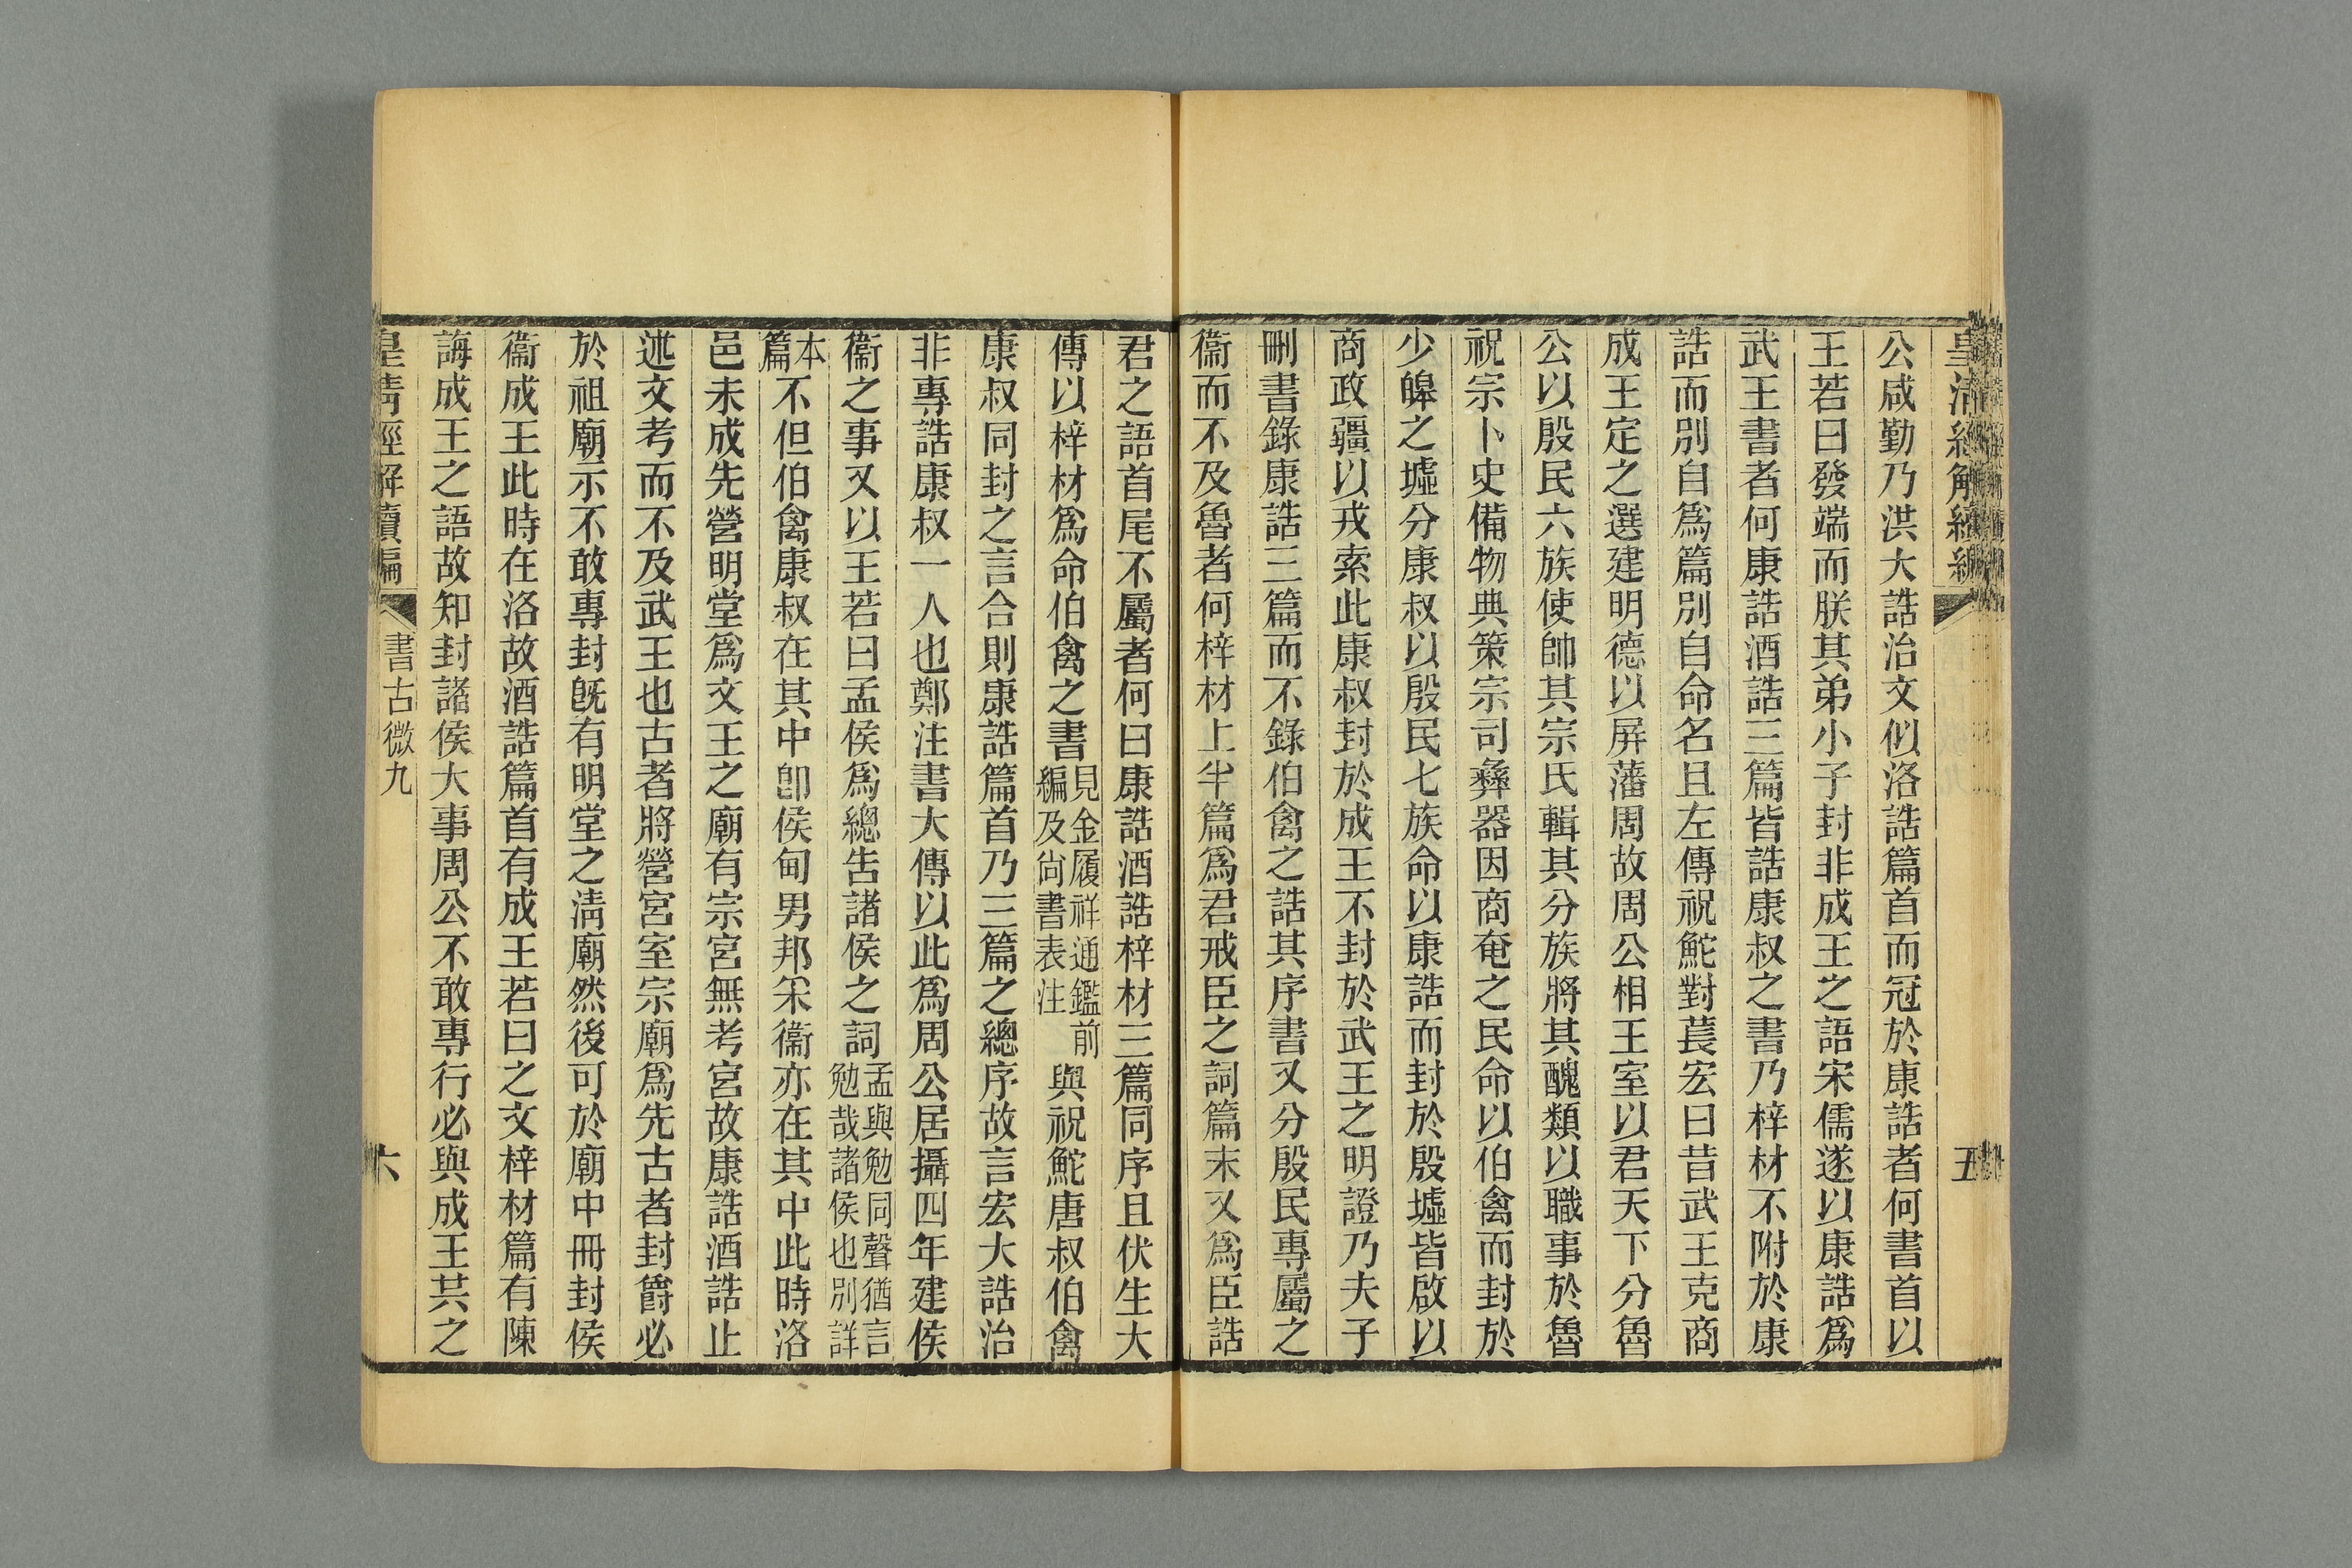 皇清經解續編
五
公咸勤乃洪大誥治文似洛誥篇首而冠於康誥者何書首以
王若曰發端而朕其弟小子封非成王之語宋儒遂以康誥爲
武王書者何康誥酒誥三篇皆誥康叔之書乃梓材不附於康
誥而別自爲篇別自命名且左傳祝鮀對萇宏曰昔武王克商
成王定之選建明德以屏藩周故周公相王室以君天下分魯
公以殷民六族使帥其宗氏輯其分族將其醜類以職事於魯
祝宗卜史備物典策宗司彝器因商奄之民命以伯禽而封於
少皞之墟分康叔以殷民七族命以康誥而封於殷墟皆啟以
商政疆以戎索此康叔封於成王不封於武王之明證乃夫子
刪書錄康誥三篇而不錄伯禽之誥其序書又分殷民專屬之
衞而不及魯者何梓材上半篇爲君戒臣之詞篇末又爲臣誥
君之語首尾不屬者何曰康誥酒誥梓材三篇同序且伏生大
傳以梓材爲命伯禽之書見金履祥通鑑前編及尙書表注與祝鮀唐叔伯禽
康叔同封之言合則康誥篇首乃三篇之總序故言宏大誥治
非專誥康叔一人也鄭注書大傳以此爲周公居攝四年建侯
衞之事又以王若曰孟侯爲總吿諸侯之詞孟與勉同聲猶言勉哉諸侯也別詳
本篇不但伯禽康叔在其中卽侯甸男邦采衞亦在其中此時洛
邑未成先營明堂爲文王之廟有宗宮無考宮故康誥酒誥止
述文考而不及武王也古者將營宮室宗廟爲先古者封爵必
於祖廟示不敢專封旣有明堂之淸廟然後可於廟中冊封侯
衞成王此時在洛故酒誥篇首有成王若曰之文梓材篇有陳
誨成王之語故知封諸侯大事周公不敢專行必與成王共之
皇清經解續編
書古微九
六